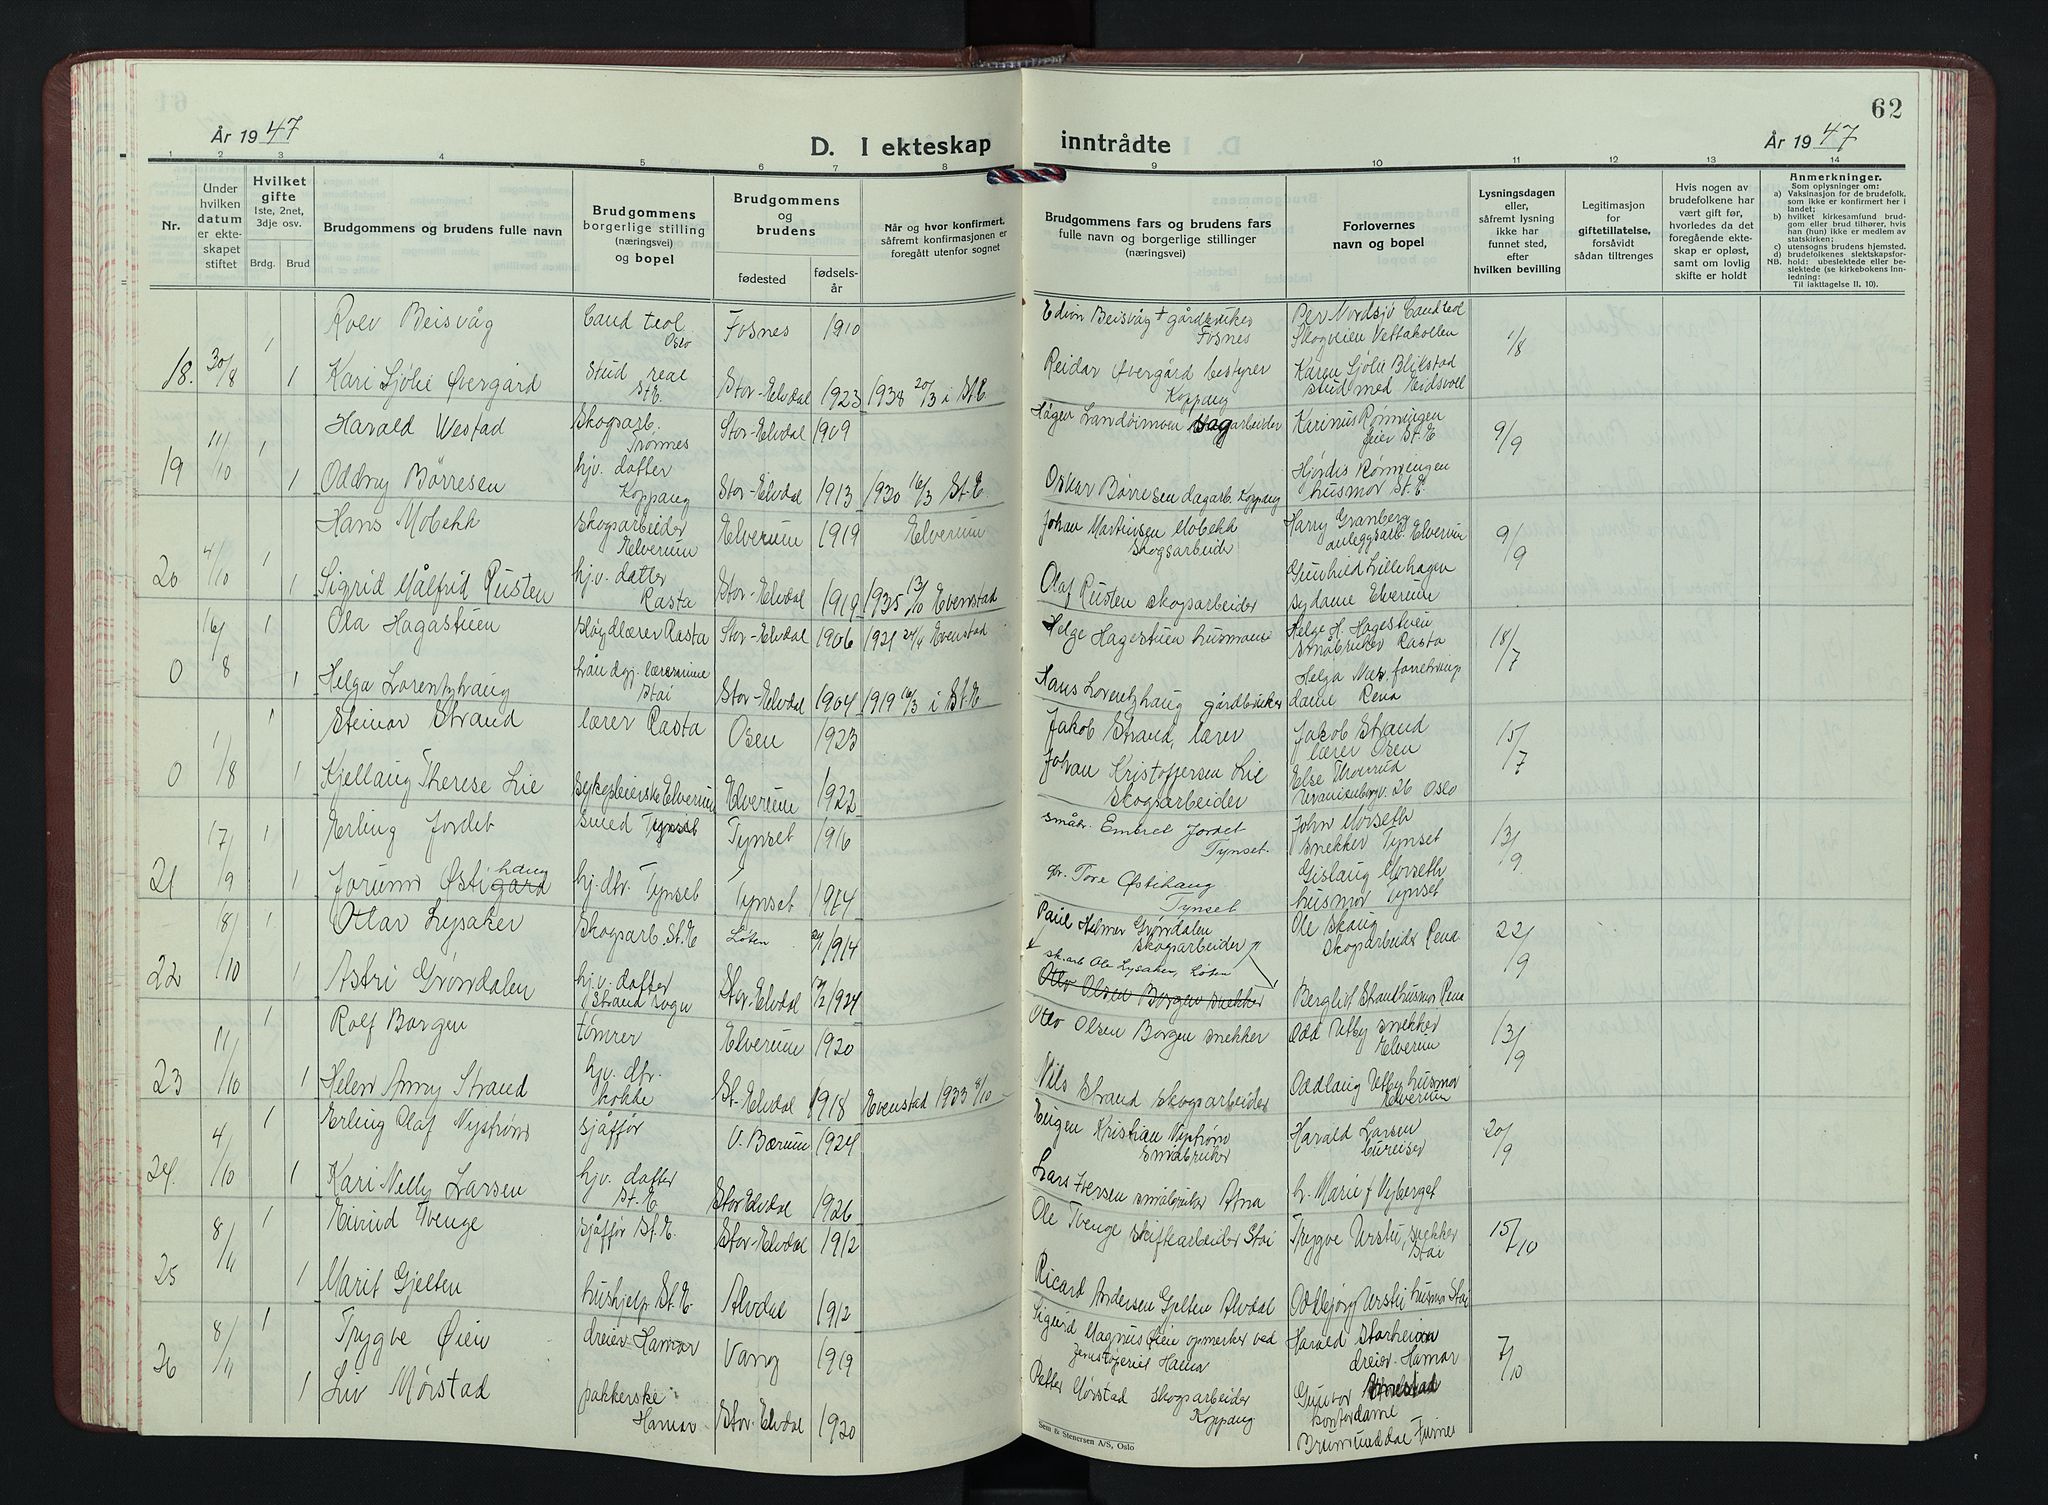 62
År 1947
D. I ekteskap inntrådte
År 1947
1 2 3 4 5 6 7 8 9 10 11 12 13 14
Nr.
Under hvilken datum er ekteskapet stiftet
Hvilket gifte
1ste, 2net, 3dje osv.
Brdg. Brud
Brudgommens og brudens fulle navn
Brudgommens borgerlige stilling (næringsvei) og bopel
Brudgommens og brudens
fødested
fødselsår
Når og hvor konfirmert, såfremt konfirmasjonen er foregått utenfor sognet
Brudgommens fars og brudens fars fulle navn og borgerlige stillinger (næringsvei)
Forlovernes navn og bopel
Lysningsdagen eller, såfremt lysning ikke har funnet sted, efter hvilken bevilling
Legitimasjon for giftetillatelse, forsåvidt sådan tiltrenges
Hvis nogen av brudefolkene har vært gift før, hvorledes da det foregående ekteskap er opløst, samt om lovlig skifte er holdt
Anmerkninger.
Som oplysninger om:
a) Vaksinasjon for de brudefolk, som ikke er konfirmert her i landet;
b) hvilket kirkesamfund brudgom eller brud tilhører, hvis han (hun) ikke er medlem av statskirken;
c) utensogns brudens hjemsted.
d) brudefolkenes slektskapsforhold:
NB. ubeslektede eller beslektede (se kirkebokens Innledning:
Til iakttagelse II, 10).
18. 30/8 1 Rolv Beisvåg Cand teol Oslo Fosnes 1910 Edvin Beisvåg + gårdbruker Fosnes Per Nordsjö Cand teol Skogveien Vettakollen 1/8
1 Kari Sjölie Øvergård Stud real St.E. Stor-Elvdal 1923 1938 20/3 i St.E Reidar Øvergård bestyrer Koppang Karen Sjölie Blikstad stud med Eidsvoll
19 11/10 1 Harald Westad Skogsarb. Trønnes Stor-Elvdal 1909 Hågen Landsimoen arbeider Karinus Rønningen St.E 9/9
1 Oddny Børresen hjv. datter Koppang Stor-Elvdal 1913 1930 16/3 St.E. Oskar Børresen dagarb. Koppang Hjördis Rønningen husmor St.E.
20 4/10 1 Hans Mobekk Skogsarbeider Elverum Elverum 1919 Elverum Johan Martinsen Mobekk Skogsarbeider Harry Granberg anleggsarb. Elverum 9/9
1 Sigrid Målfrid Rusten hj.v. datter Rasta Stor-Elvdal 1919 1935 13/10 Evenstad Olaf Rusten skogsarbeider Gunhild Lillehagen sydame Elverum
0 16/8 1 Ola Hagastuen Sløydlærer Rasta Stor-Elvdal 1906 1921 Evenstad Helge Hagestuen husmann Helge H. Hagestuen Småbruker Rasta 18/7
1 Helga Lorentzhaug håndgj. lærerinne Stai Stor-Elvdal 1904 1919 16/3 i St.E Hans Lorentzhaug gårdbruker Helga forretningsdame Rena
0 1/8 1 Steinar Strand lærer Rasta Osen 1923 Jakob Strand, lærer Jakob Strand lærer Osen 15/7
1 Kjellaug Therese Lie Sykepleierske Elverum Elverum 1922 Johan Kristoffersen Lie Skogsarbeider Else Uranienborgv. 26 Oslo
21 17/9 1 Erling Jordet Smed Tynset Tynset 1916 småbr. Embret Jordet Tynset. John Morseth snekker Tynset 13/9
1 Jorunn Østigard haug hj.dtr. Tynset Tynset 1924 gbr. Tore Østihaug Tynset Gislaug Morseth husmor Tynset
22 18/10 1 Otlar Lysaker Skogsarb. St.E Løten 1914 Paul Helmer Grøndalen Skogsarbeider Ole Skaug Skogsarbeider Rena 22/9
sk.arb Ole Lysaker, Løten
1 Astri Grøndalen hj.v. datter Strand sogn Stor-Elvdal 1924 Otto Olsen Borgen snekker Bergliot Strand husmor Rena
23 11/10 1 Rolf Borgen tømrer Elverum 1920 Otto Olsen Borgen snekker Odd Utby snekker Elverum 13/9
1 Helen Anny Strand hjv. dtr. Kokke St-Elvdal 1918 Evenstad 1933 8/10 Nils Strand Skogsarbeider Oddlaug Utby husmor Elverum
24. 4/10 1 Erling Olaf Nystrøm sjåffør V. Bærum 1924 Eugen Kristian Nystrøm Småbruker Harald Larsen 20/9
1 Kari Nelly Larsen hjv. datter St.E Stor Elvdal 1926 Lars Iversen småbruker Atna Marie Nyberget
25 8/11 1 Eivind Tvenge sjåffør St.E. Stor-Elvdal 1912 Ole Tvenge Skiftearbeider Stai Trygve Urstu, snekker Stai 15/10
1 Marit Gjelten hushjelp St.E Alvdal 1912 Ricard Andersen Gjelten Alvdal Oddbjörg Urstu husmor Stai
26 8/11 1 Trygve Øien dreier Hamar Vang 1919 Sigurd Magnus Øien opmerker ved Hamar Harald Storheim dreier Hamar 7/10
1 Liv Mørstad pakkerske Hamar Stor-Elvdal 1920 Petter Mørstad Skogsarbeider Koppang Gunvor kontordame Brumunddal Furnes
Sem & Stenersen A/S, Oslo